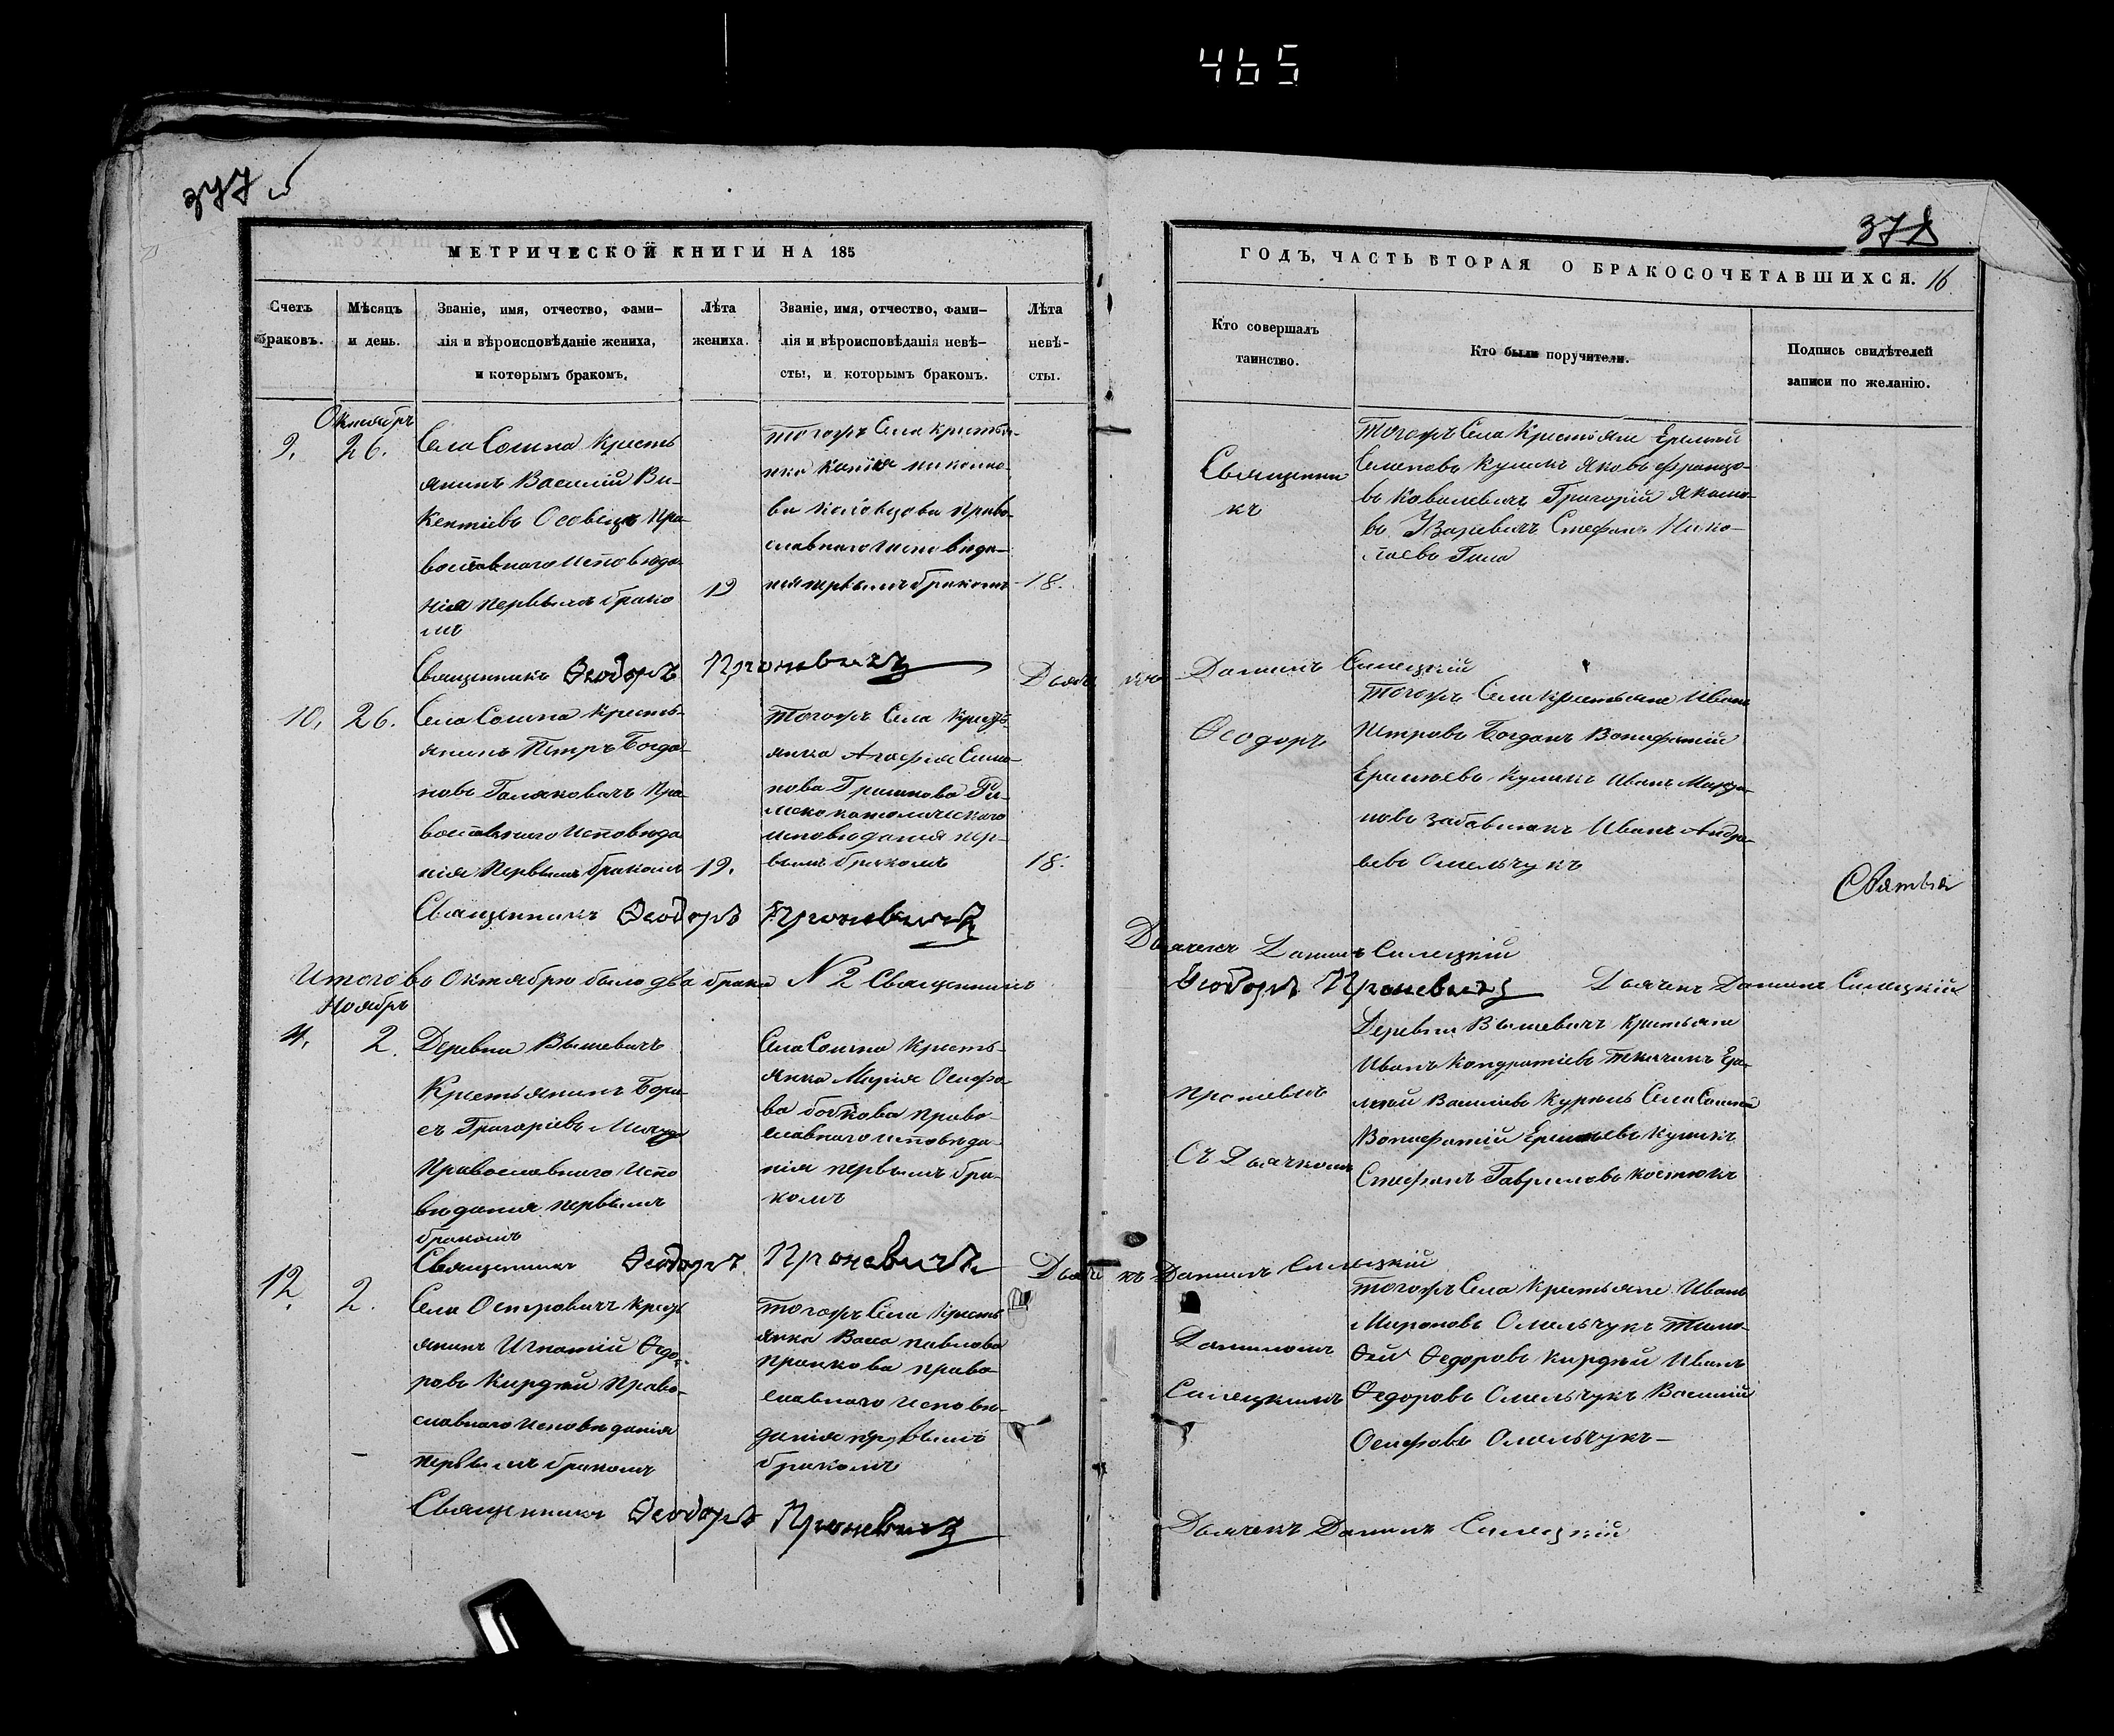 465
377 об
378
МЕТРИЧЕСКОЙ КНИГИ НА 185
ГОДЪ, ЧАСТЬ ВТОРАЯ О БРАКОСОЧЕТАВШИХСЯ. 16
Счетъ браковъ.
Мѣсяцъ и день.
Званіе, имя, отчество, фами-
лія и вѣроисповѣданіе жениха,
и которымъ бракомъ.
Лѣта
жениха.
Званіе, имя, отчество, фами-
лія и вѣроисповѣданія невѣ-
сты, и которымъ бракомъ.
Лѣта
невѣ-
сты.
Кто совершалъ
таинство.
Кто были поручители.
Подпись свидѣтелей
записи по желанію.
Октябрь
9. 26.
Села Сошна Кресть
янинъ Василій Ви-
кентіевъ Осовецъ Пра-
вославнаго Исповѣда-
нія первымъ брако
мъ
19
тогожъ Села крестья-
нка
ва православ-
славнаго исповѣда-
нія первымъ бракомъ
18.
Священни
къ
Тогожъ Села Крестьяне Еремѣй
Семеновъ Куликъ Яковъ Францо-
въ Ковалевичъ Григорій Якимо-
въ Стефанъ Нико-
лаевъ
Священникъ Ѳеодоръ Проневичъ Дьячекъ Данилъ Силецкій
10. 26.
Села Сошна Кресть-
янинъ Петръ Богда-
новъ Православ-
вославнаго Исповѣда
нія Первымъ бракомъ
19.
тогожъ Села Кресть-
янка Агафія Симо-
нова Гришкова Ри-
мско католическаго
исповѣданія пер-
вымъ бракомъ
18.
Ѳеодоръ
тогожъ Села Крестьяне Иванъ
Петровъ Богданъ Вонифатій
Еремѣевъ Куликъ Иванъ
новъ Иванъ Андре-
евъ Омельчукъ
Святыя
Священникъ Ѳеодоръ Проневичъ
Дьячекъ Данилъ Силецкій
Итого въ Октябрѣ было два брака N 2 Священникъ
Ѳеодоръ Проневичъ Дьячекъ Данилъ Силецкій
Ноябрь
11. 2.
Деревни Вышевичъ
Крестьянинъ Бори-
съ Григоріевъ
Православнаго Испо
вѣданія первымъ
бракомъ
Села Сошна Кресть-
янка Марія Осифо-
ва Бобкова право-
славнаго исповѣда-
нія первымъ бра-
комъ
Проневичъ
Съ Дьячкомъ
Деревни Вышевичъ Крестьяне
Иванъ Кондратіевъ Ере-
мѣй Василіевъ Села Сошна
Вонифатій Еремѣевъ Куликъ
Стефанъ Гавриловъ Костюкъ
Священникъ Ѳеодоръ Проневичъ Дьячекъ Данилъ Силецкій
12. 2.
Села Островичъ Кресть
янинъ Игнатій Ѳедо-
ровъ Кирдей Право-
славнаго Исповѣданія
первымъ бракомъ
тогожъ Села Кресть
янка Васса Павлова
Пронкова право-
славнаго исповѣ-
данія первымъ
бракомъ
Даниломъ
Силецкимъ
тогожъ Села Крестьяне Иванъ
Мироновъ Омельчукъ Тимо-
ѳей Ѳедоровъ Кирдей Иванъ
Ѳедоровъ Омельчукъ Василій
Осифовъ Омельчукъ-
Священникъ Ѳеодоръ Проневичъ
Дьячекъ Данилъ Силецкій